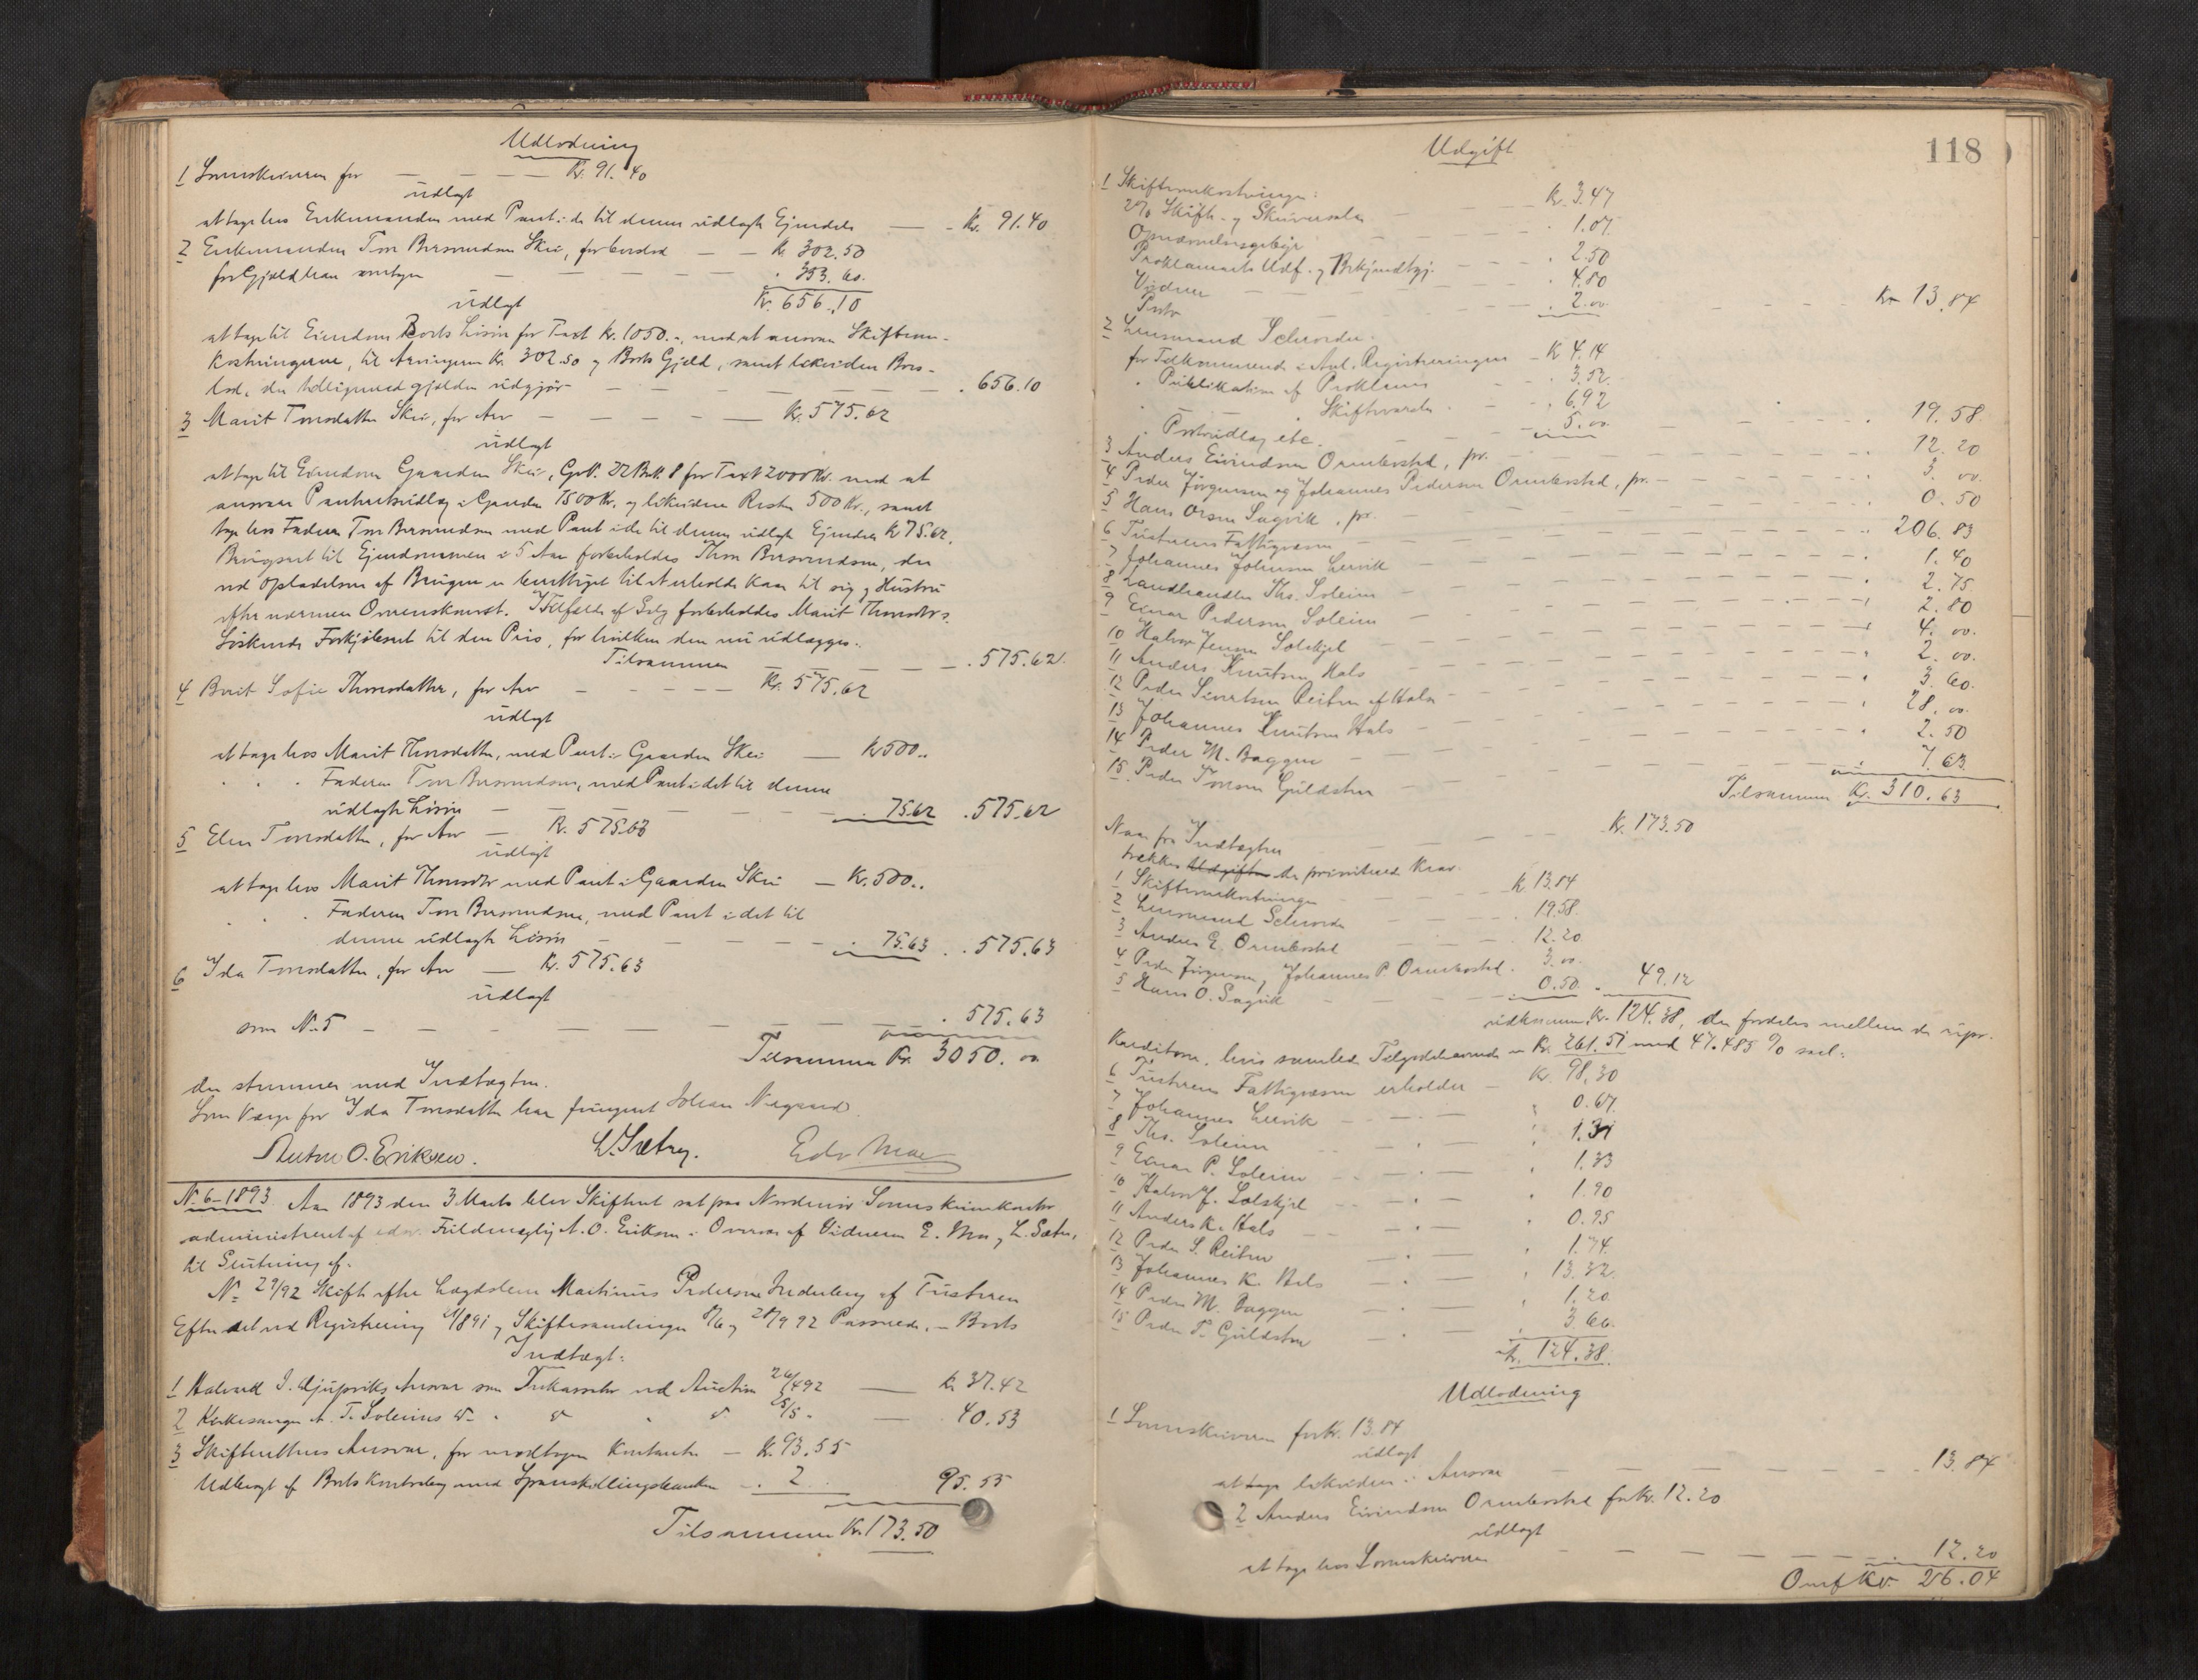 Udlodning
1 Sorenskriveren for — — — Kr. 91.40
udlagt
at tage hos Enkemanden med Pant i de til denne udlagte Ejendele — - Kr. 91.40
2 Enkemanden Tore Biersvendsen Skei, for boeslod — — Kr. 302.50
for Gjæld han overtager — — — — . 353.60.
udlagt Kr. 656.10
at tage til Eiendom Boets Løsøre for Taxt Kr. 1050.-, mod at ansvare Skifteom-
kostningerne, til Arvingerne Kr. 302.50 og Boets Gjæld, samt likvidere Boes-
lod, der tilligemed gjælden udgjør — — — — . 656.10
3 Marit Toresdatter Skei, for Arv — — — — Kr. 575.62
udlagt
at tage til Eiendom Gaarden Skei, G.No. 22 Br.No. 8 for Taxt 2000 Kr. mod at
ansvare Pantheftudlæg i Gaarden 1500 Kr. og likvidere Resten 500 Kr., samt
tage hos Faderen Tore Biersvendsen med Pant i de til denne udlagte Ejendele Kr 75.62.
Brugsret til Ejendommen i 5 Aar forbeholdes Thore Biersvendsen, der
ved Opladelsen af Brugen er berettiget til at erholde Kaar til sig og Hustru
efter nærmere Overenskomst. I Tilfælde af Salg forbeholdes Marit Thoresdtrs
Søskende Forkjøbsret til den Pris, for hvilken den nu udlægges.
Tilsammen — — — — . 575.62.
4 Berit Sofie Thoresdatter, for Arv — — — — Kr. 575.62
udlagt
at tage hos Marit Thoresdatter, med Pant i Gaarden Skei — Kr 500..
. . . Faderen Tore Biersvendsen, med Pant i det til denne
udlagte Løsøre — — — — — . 75.62 . 575.62
5 Elen Toresdatter, for Arv — Kr. 575.63
udlagt
at tage hos Marit Thoresdtr med Pant i Gaarden Skei — Kr. 500..
. . . Faderen Tore Biersvendsen, med Pant i det til
denne udlagte Løsøre — — — — . 75.63 . . 575.63
6 Ida Toresdatter, for Arv — Kr. 575.63
udlagt
som No. 5 — — — — — — — . 575.63
Tilsammen Kr. 3050. 00
der stemmer med Indtægten.
Som Værge for Ida Toresdatter har fungeret Johan Nergaard.
Anton O. Eriksen. L. Sætre. Edv Moe
No. 6-1893. Aar 1893 den 3 Marts blev Skifteret sat paa Nordmør Sorenskriverkontor
administreret af edsv. Fuldmægtig A. O. Eriksen i Overvær af Vidnerne E. Moe og L. Sætre,
til Slutning af.
No. 29/92 Skifte efter Lægdslem Martinus Pedersen Inderberg af Tustern
Efter det ved Registrering /1891 og Skiftesamlinger 8/6 og 28/9 92 Passerede. - Boets
Indtægt:
1 Halvard I. Djupviks Ansvar som Inkassator ved Auction 26/4 92 — Kr. 37.42
2 Kirkesanger A. T. Soleims do. " do " do. 25/5 - — . 40.53
3 Skifterettens Ansvar, for modtagen Kontanter — Kr. 93.55
Udbragt af Boets Kontrabog med Spareskillingsbanken — . 2. . 95.55
Tilsammen Kr. 173.50
118
Udgift
1 Skifteomkostninger:
2% Skifte- og Skriversalær — — — Kr. 3.47
Opnævnelsesgebyr — — — — . 1.07.
Proklamaets Udf. og Bekjendtgj. — — — . 2.50
Vidner — — — — . 4.80
Porto — — — — . 2.00. — — — Kr 13.84
2 Lensmand Schrøder:
for Tilkommende i Anl. Registreringen — Kr 4.14
. Publikation af Proklama — — . 3.52.
. . Skiftevarsler — — . 6.92
. Portoudlæg etc. — — . 5.00. — — — . 19.58.
3 Anders Eivindsen Ormbostad, pr. — — — — . 12.20
4 Peder Jörgensen og Johannes Pedersen Ormbostad, pr. — — — . 3. 00.
5 Hans Orsen Sagvik, pr. — — — — . 0.50
6 Tusterens Fattigvæsen — — — — . 206.83
7 Johannes Johnsen Leervik — — — — . 1.40
8 Landhandler Ths. Soleim — — — — . 2.75
9 Einar Pedersen Soleim — — — — . 2.80
10 Halvor Jensen Solskjel — — — — . 4. 00.
11 Anders Knutsen Hals — — — — . 2. 00.
12 Peder Sivertsen Reiten af Hals — — — — . 3. 60.
13 Johannes Knutsen Hals — — — — . 28. 00.
14 Peder M. Baggen — — — — . 2. 50
15. Peder Toresen Guldsten — — — — . 7. 63.
Tilsammen Kr. 310.63.
Naar fra Indtægten — — — Kr. 173.50
trækkes Udgiften de prioriterede Krav.
1 Skifteomkostninger — — — Kr 13.84
2 Lensmand Schrøder — — — . 19.58.
3 Anders E. Ormbostad — — — . 12.20
4 Peder Jörgensen og Johannes P. Ormbostad. . 3. 00.
5 Hans O. Sagvik — — — . 0.50. . 49.12
udkommer Kr. 124.38, der fordeles mellem de uprv.
Kreditorer, hvis samlede Tilgodehavende er Kr. 261.51 med 47.485 % saal:
6 Tusterens Fattigvæsen erholder — Kr. 98.30
7 Johannes Leervik — . — . 0.67.
8 Ths. Soleim — . — . 1.31
9 Einar P. Soleim — . — . 1.33
10 Halvor J. Solskjel — . — . 1.90
11 Anders K. Hals — . — . 0.95
12 Peder S. Reiten — . — . 1.74.
13 Johannes K. Hals — . — . 13.32.
14 Peder M. Baggen — . — . 1.20
15 Peder T. Guldsten — . — . 3.66.
Kr. 124.38.
Udlodning
1 Sorenskriveren for Kr. 13.84
udlagt
at tage likviden i Ansvar — — — — . 13.84
2 Anders Eivindsen Ormbostad for Kr. 12.20
udlagt
at tage hos Sorenskriveren — — — — . 12.20
Ovf Kr. 26.04